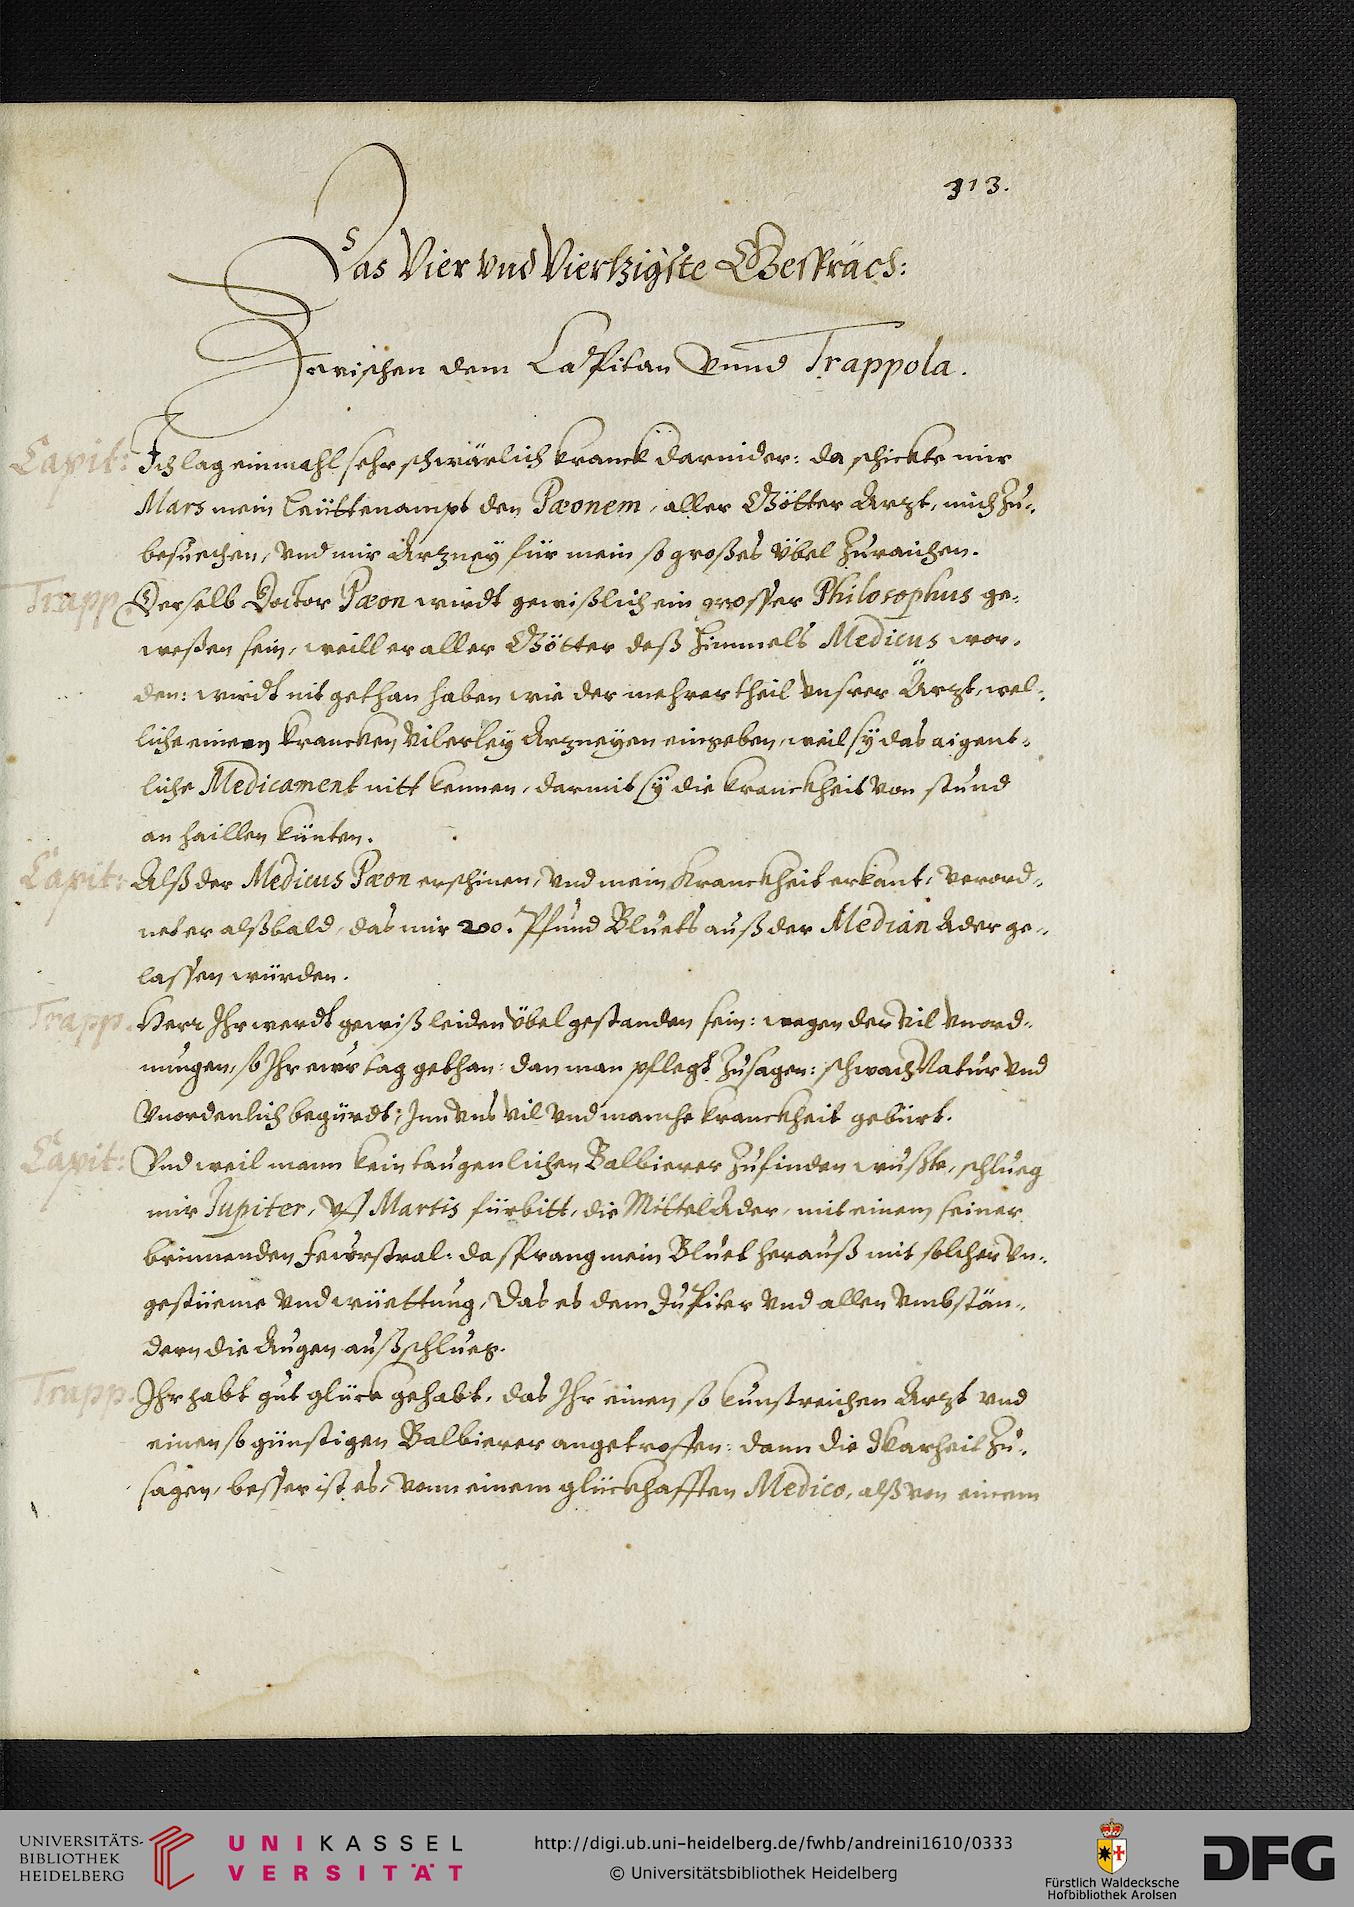 313.
Das Vier vnd Viertzigste Gespräch:
Zwischen dem Capitan Vnnd Trappola.
Capit: Ich lag einmahl sehr schwärlich kranck darnider: da schickte mir
Mars mein leüttenampt den Pæonem, aller Götter Arzt, mich zu-
besuechen, vnd mir Arzney für mein so großes übel zuraichen.
Trapp. Derselb Doctor Pæon wirdt gewißlich ein grosser Philosophus ge-
weßen sein, weill er aller Götter deß Himmels Medicus wor-
den: wirdt nit gethan haben wie der mehrer theil vnsrer Ärzt, wel-
liche einem krancken vilerley Arzneyen eingeben, weil sy das aigent-
liche Medicament nitt kennen, darmit sy die kranckheit von stund
an haillen künten.
Capit: Alß der Medicus Pæon erschinen, vnd mein Kranckheit erkant, verord-
net er alßbald, das mir 200. Pfund Bluets auß der Median Ader ge-
lassen würden.
Trapp. Herr Ihr werdt gewiß leiden übel gestanden sein: wegen der vil vnord-
nungen, so Ihr eur tag gethan: dan man pflegt zusagen: schwach Natur vnd
vnordenlich begürdt, Inn vns vil vnd manche kranckheit gebürt.
Capit: Vnd weil mann kein taugenlichen Balbierer zufinden wußte, schlueg
mir Jupiter, vff Martis fürbitt, die Mittel Ader, mit einem seiner
brinnenden feürstral: da sprang mein Bluet herauß mit solcher vn-
gestüeme vnd wüettung, Das es dem Jupiter vnd allen vmbstän-
dern die Augen außschlueg.
Trapp. Ihr habt gut glück gehabt, das Ihr einen so kunstreichen Arzt vnd
einen so günstigen Balbierer angetroffen: dann die Warheit zu-
sagen, besser ist es, vonn einem glückhafften Medico, alß von einem
UNIVERSITÄTS-
BIBLIOTHEK
HEIDELBERG
UNIKASSEL
VERSITÄT
http://digi.ub.uni-heidelberg.de/fwhb/andreini1610/0333
© Universitätsbibliothek Heidelberg
Fürstlich Waldecksche
Hofbibliothek Arolsen
DFG